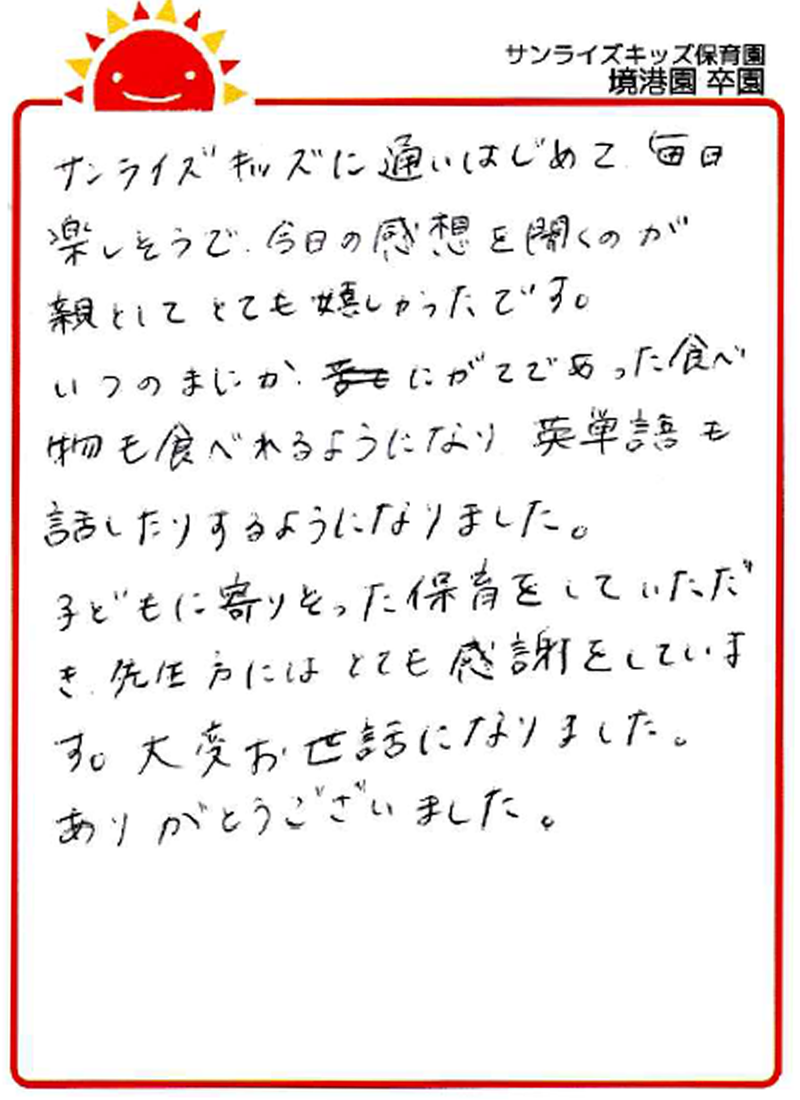 サンライズキッズ保育園
境港園 卒園
サンライズキッズに通いはじめて、毎日
楽しそうで、今日の感想を聞くのが
親としてとても嬉しかったです。
いつのまにか、にがてであった食べ
物も食べれるようになり、英単語も
話したりするようになりました。
子どもに寄りそった保育をしていただ
き、先生方にはとても感謝をしていま
す。大変お世話になりました。
ありがとうございました。